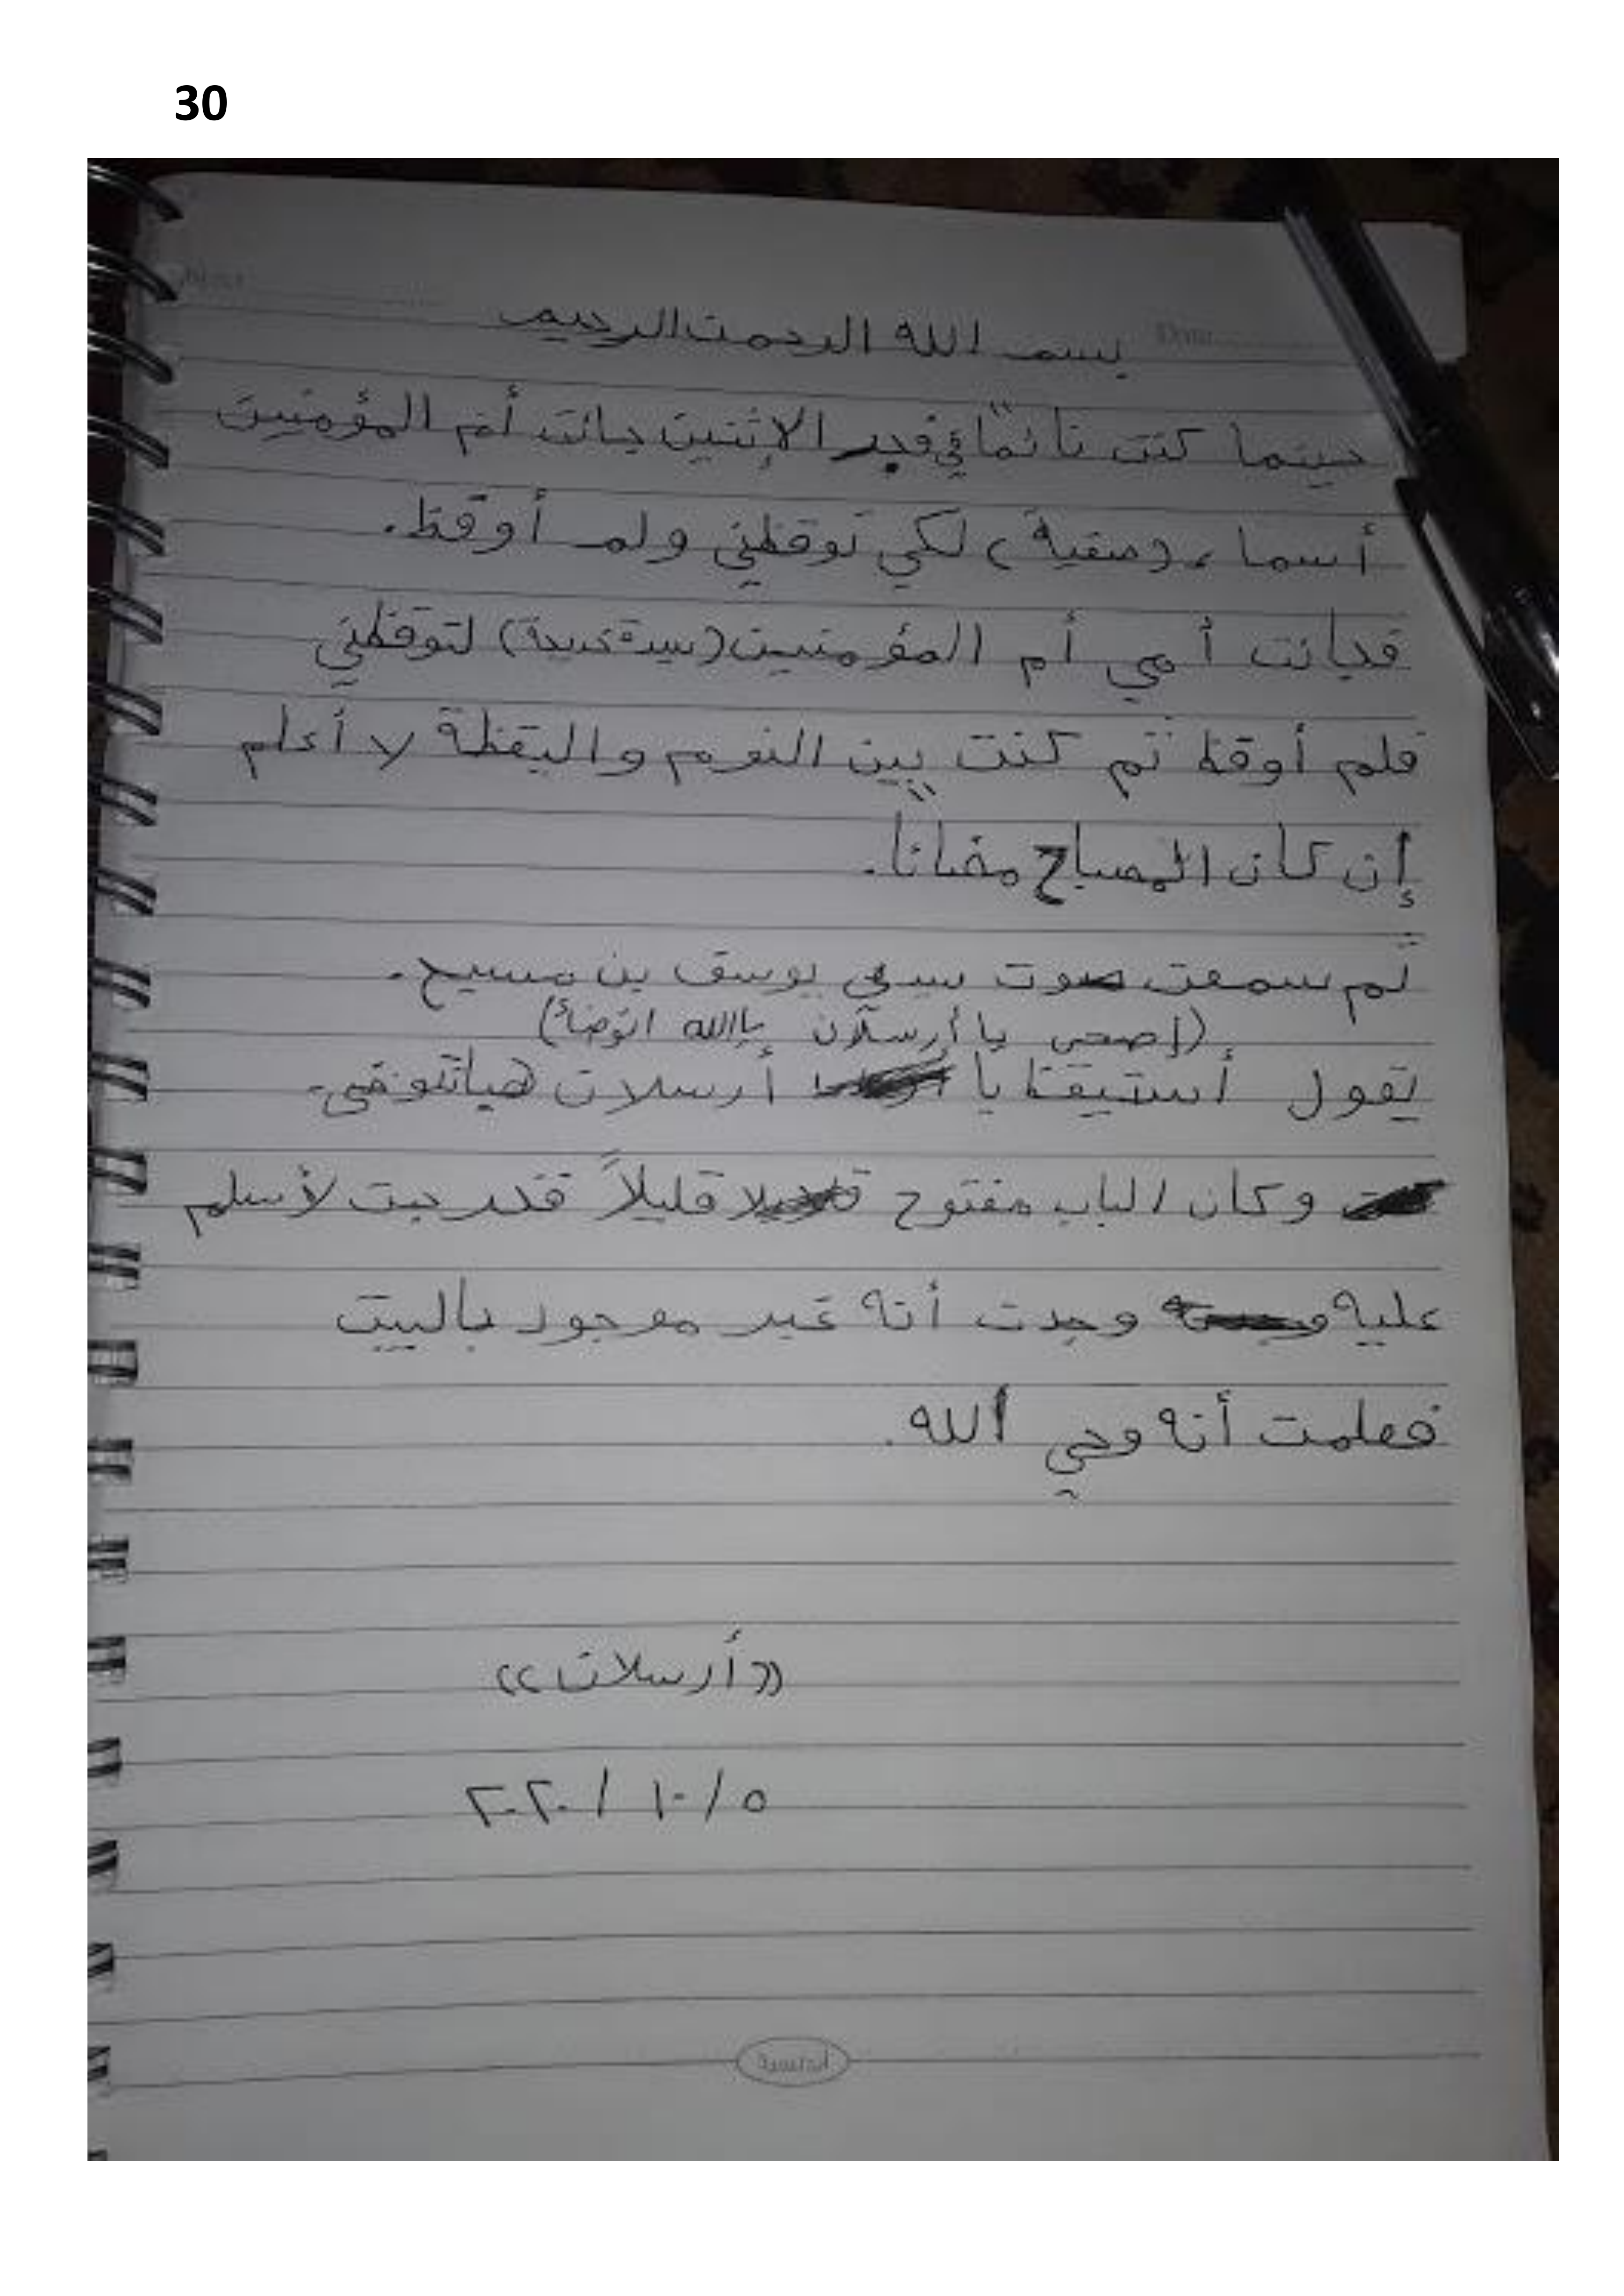 30
بسم الله الرحمن الرحيم
حينما كنت نائمًا في فجر الإثنين جائت أم المؤمنين
أسماء (صفية) لكي توقظني ولم أوقظ.
فجائت أمي أم المؤمنين ( ) لتوقظني
فلم أوقظ ثم كنت بين النوم واليقظة لا أعلم
إن كان المصباح مضائاً.
ثم سمعت صوت سيدي يوسف بن مسيح.
(إصحى يا أرسلان ياالله اتوضأ)
يقول أستيقظ يا أرسلان هيا
وكان الباب مفتوح قليلاً فخرجت لأسلم
عليه وجدت أنه غير موجود بالبيت
فعلمت أنه وحي الله.
((أرسلان))
٥/١٠/٢٠٢٠